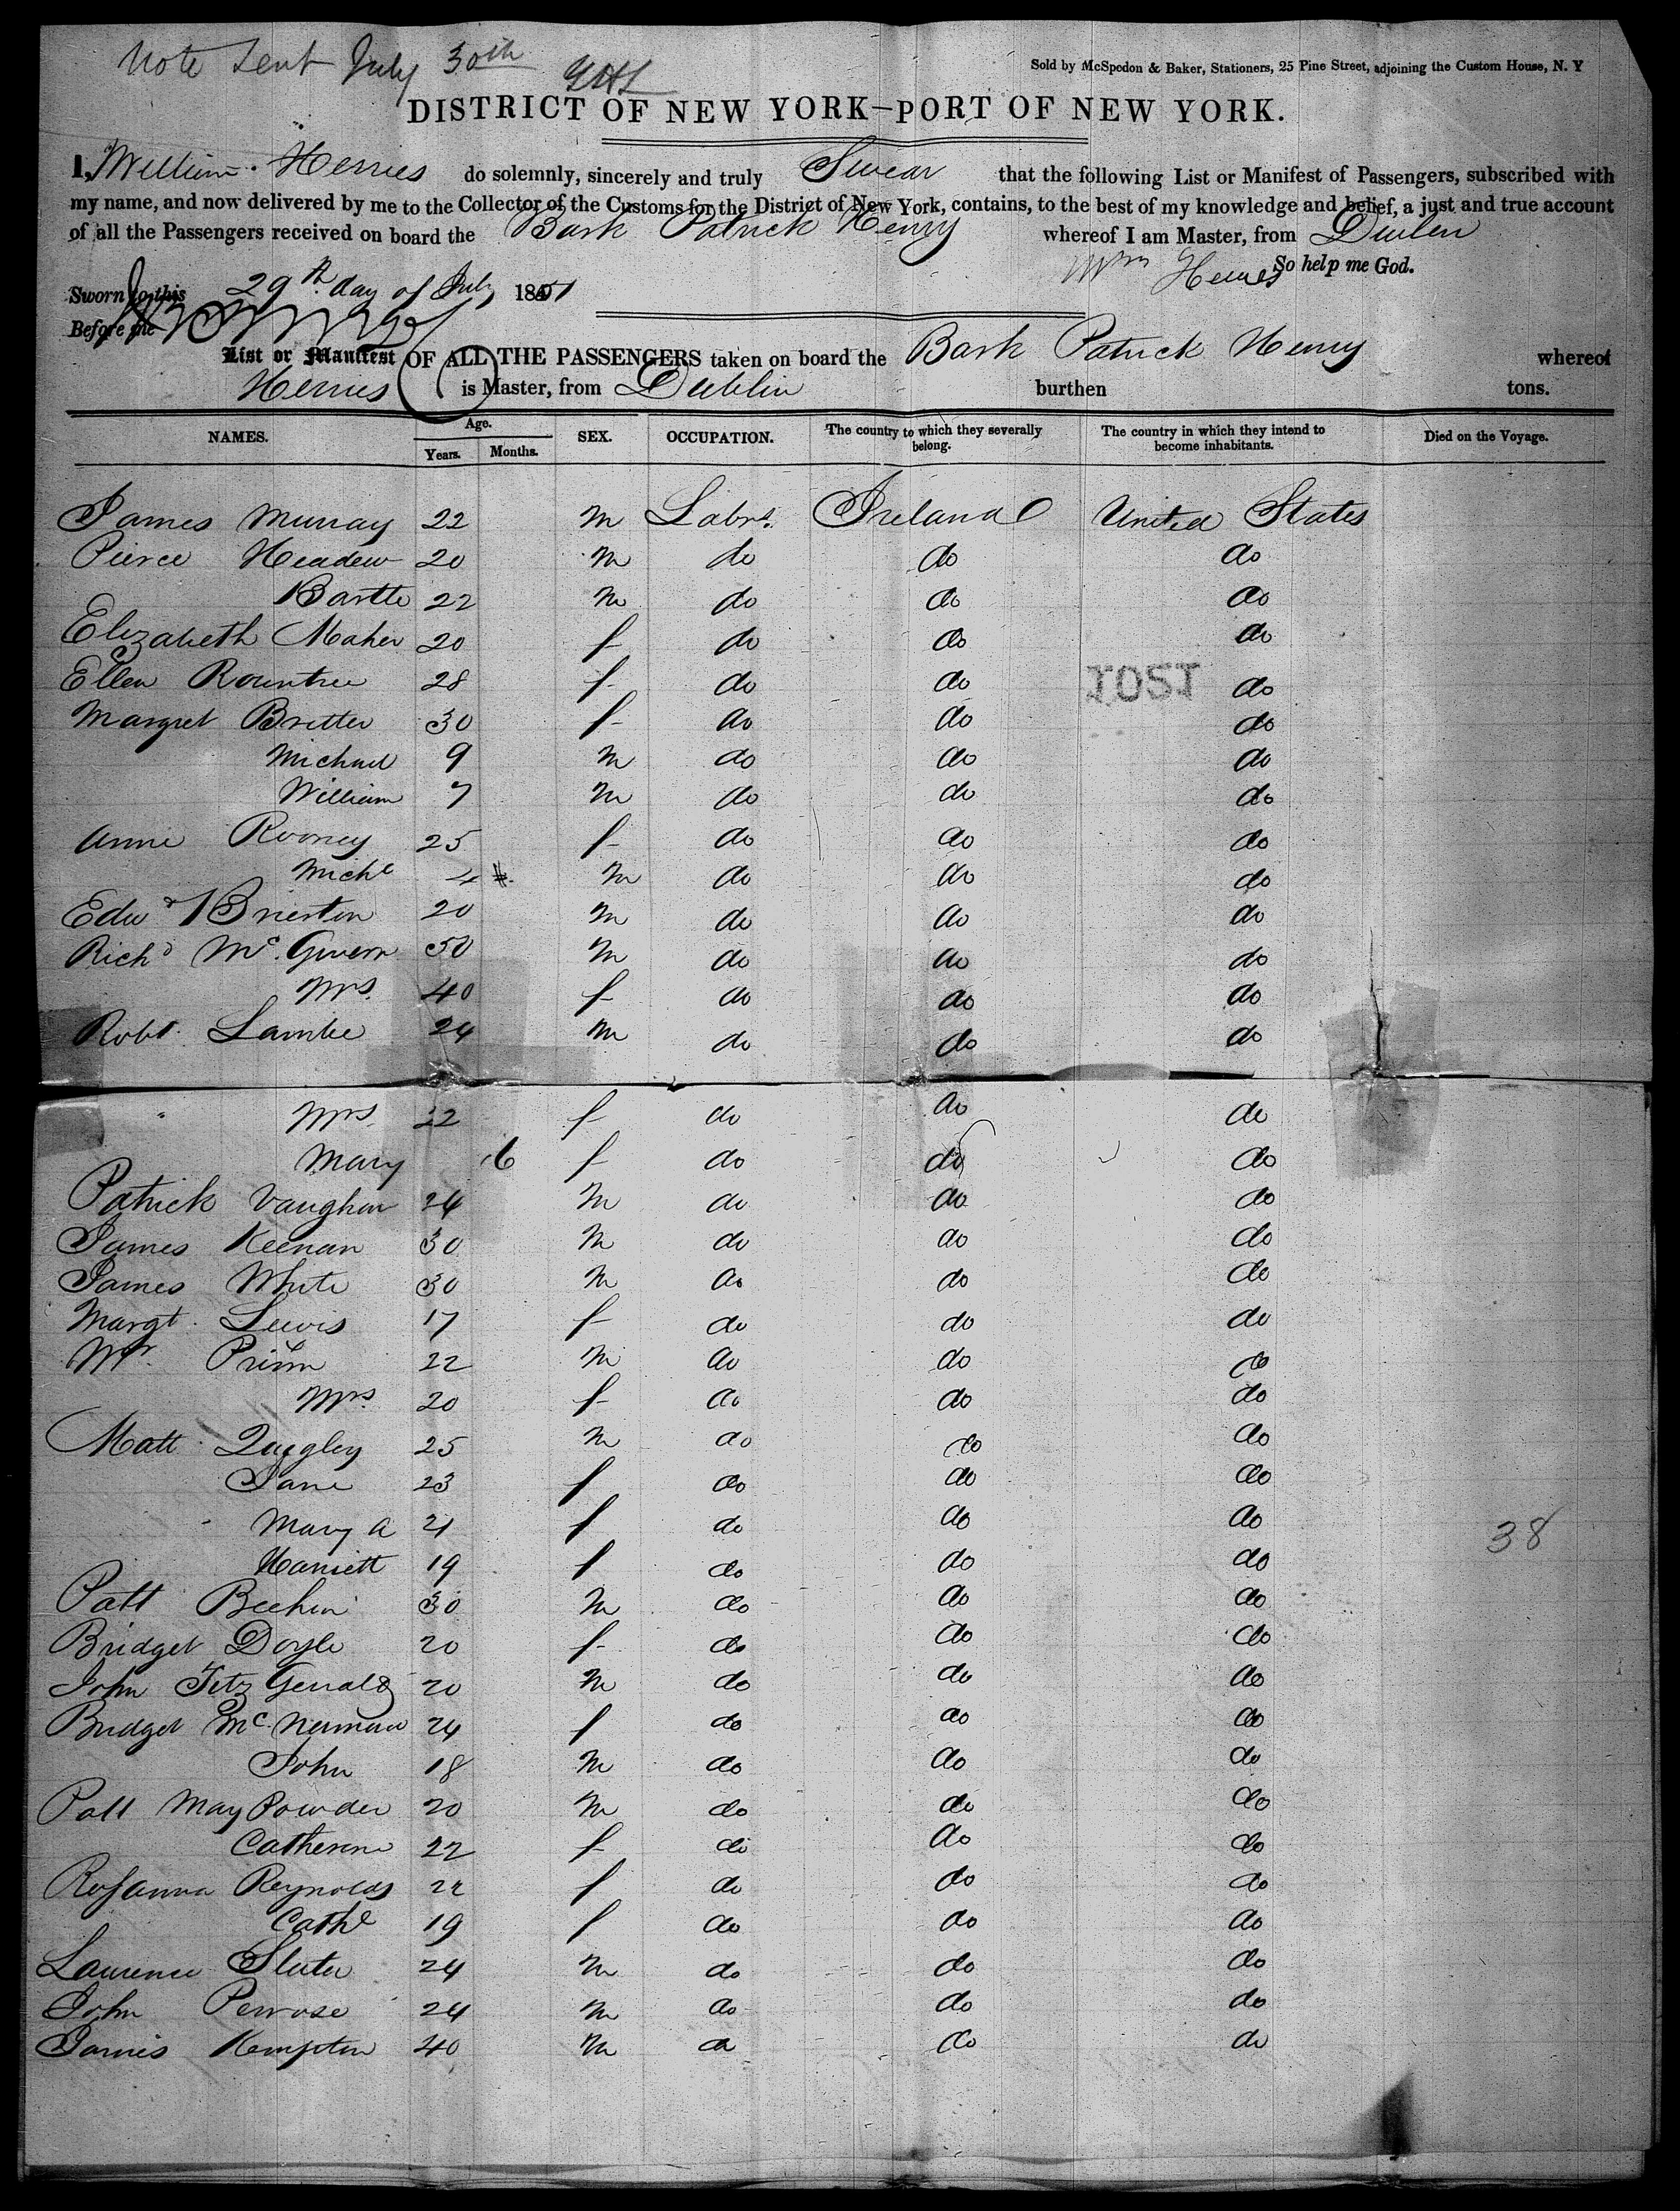 Note Sent July 30th
Sold by McSpedon & Baker, Stationers, 25 Pine Street, adjoining the Custom House, N. Y
DISTRICT OF NEW YORK—PORT OF NEW YORK.
I, William Herries do solemnly, sincerely and truly Swear that the following List or Manifest of Passengers, subscribed with
my name, and now delivered by me to the Collector of the Customs for the District of New York, contains, to the best of my knowledge and belief, a just and true account
of all the Passengers received on board the Bark Patrick Henry whereof I am Master, from Dublin
Wm Herries So help me God.
Sworn to this 29th day of July 1851
Before me
List or Manifest OF ALL THE PASSENGERS taken on board the Bark Patrick Henry whereof
Herries is Master, from Dublin burthen tons.
NAMES. Age. Years. Months. SEX. OCCUPATION. The country to which they severally belong. The country in which they intend to become inhabitants. Died on the Voyage.
James Murray 22 m Labrs. Ireland United States
Pierce Headew 20 m do do do
Bartle 22 m do do do
Elizabeth Maher 20 f do do do
Ellen Rountree 28 f do do do
1051
Margret Britter 30 f do do do
Michael 9 m do do do
William 7 m do do do
Anne Rooney 25 f do do do
Michl 4 m do do do
Edwd Brierton 20 m do do do
Richd McGivern 50 m do do do
Mrs. 40 f do do do
Robt. Lambe 24 m do do do
Mrs. 22 f do do do
Mary 6 f do do do
Patrick Vaughan 24 m do do do
James Keenan 30 m do do do
James White 30 m do do do
Margt. Lewis 17 f do do do
Mr. Prim 22 m do do do
Mrs. 20 f do do do
Matt Quigley 25 m do do do
Jane 23 f do do do
Mary A 21 f do do do
38
Harriett 19 f do do do
Patt Beehin 30 m do do do
Bridget Doyle 20 f do do do
John Fitz Gerrald 20 m do do do
Bridget McNamara 24 f do do do
John 18 m do do do
Patt May Powder 20 m do do do
Catherine 22 f do do do
Rosanna Reynolds 22 f do do do
Cathe 19 f do do do
Laurence Sluter 24 m do do do
John Penrose 24 m do do do
James Kempton 40 m do do do